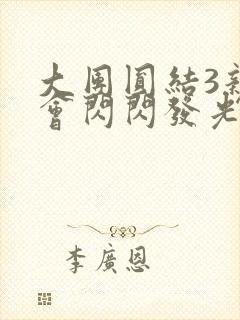 大團圓結3親
會閃閃發光
李廣恩